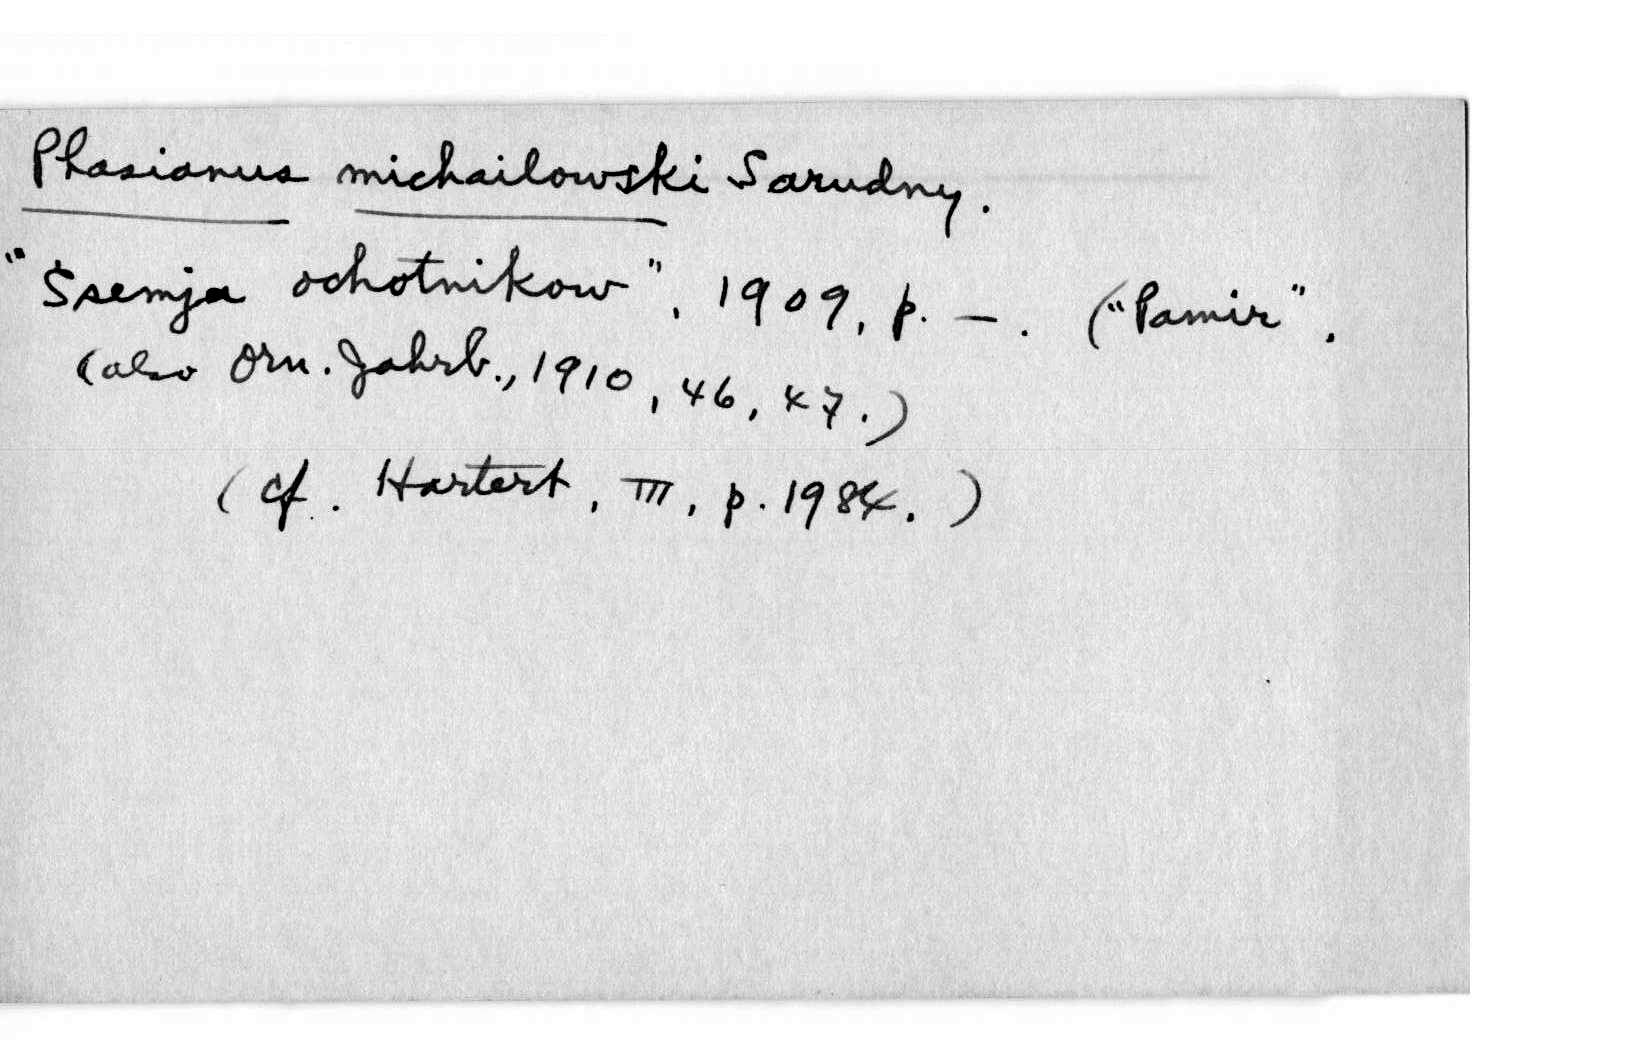 Phasianus michailowski Sarudny.
"Ssemja ochotnikow", 1909, p. — . ("Pamir".
(also Orn. Jahrb., 1910, 46, 47.)
(cf. Hartert, III, p. 1984.)